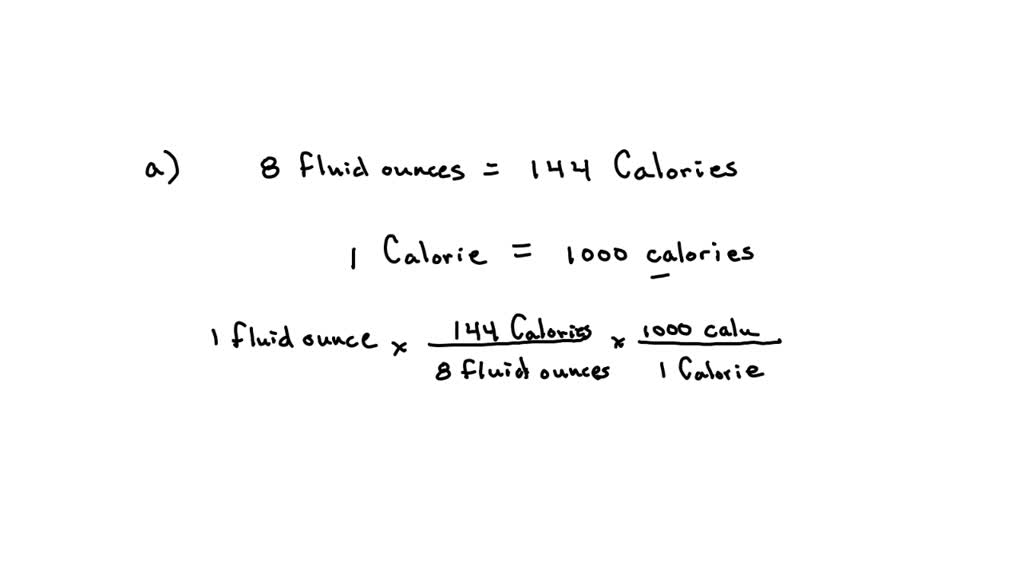 a) 8 fluid ounces = 144 Calories
1 Calorie = 1000 calories
1 fluid ounce x 144 Calories / 8 fluid ounces x 1000 calu / 1 Calorie